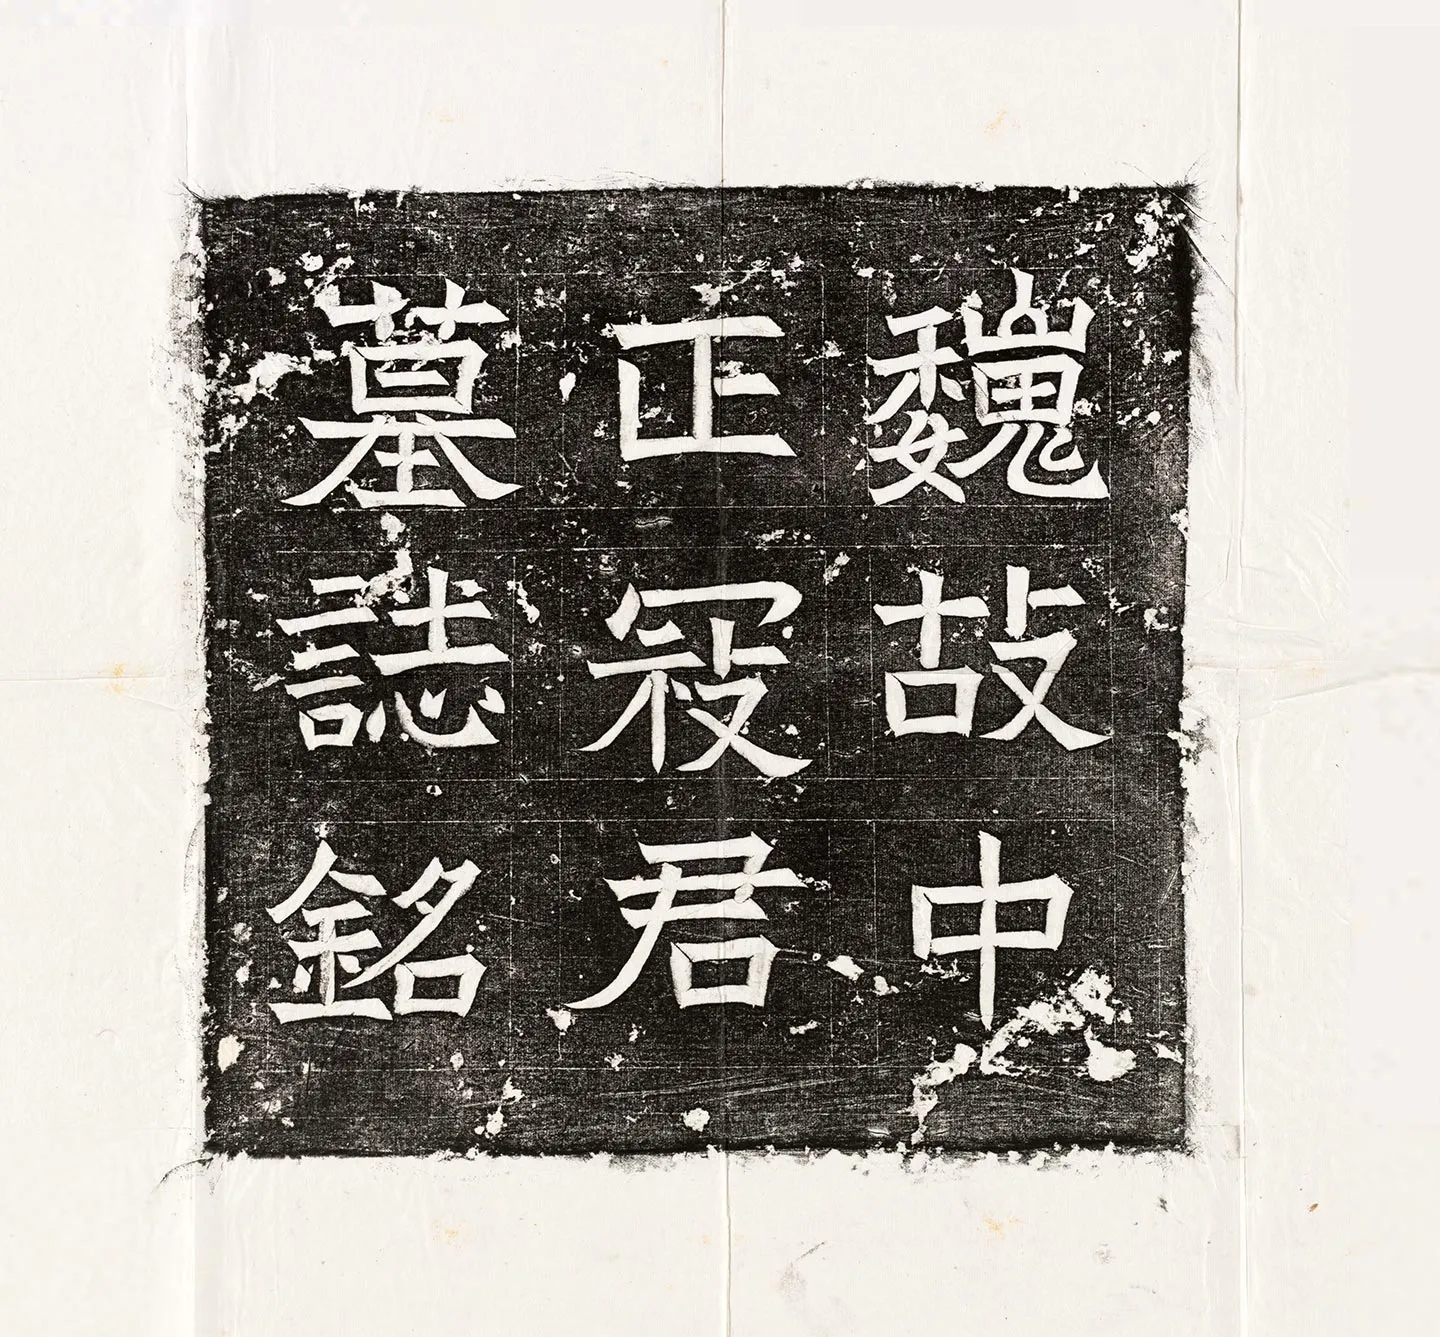 魏故中
正寇君
墓誌銘